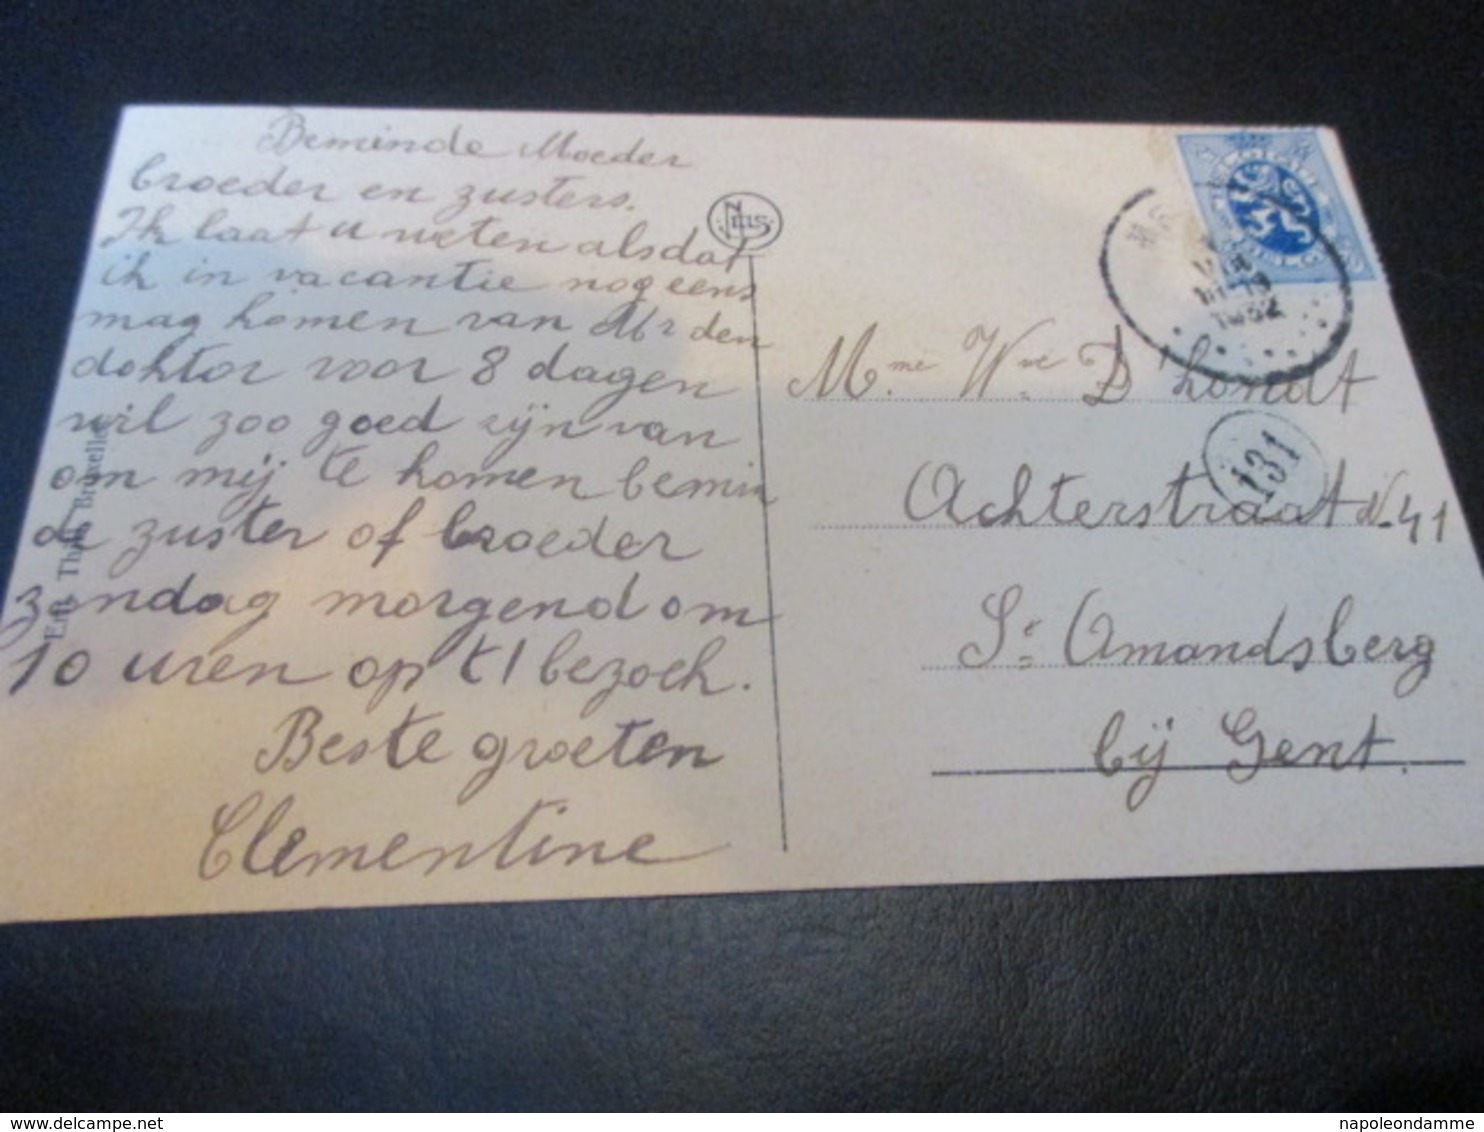 Beminde Moeder
broeder en zusters.
Ik laat u weten alsdat
ik in vacantie nog eens
mag komen van Mr den
doktor voor 8 dagen
wil zoo goed zijn van
om mij te komen bemin
de zuster of broeder
zondag morgend om
10 uren op t'l bezoek.
Beste groeten
Clementine
NELS
Ern. Thill, Bruxelles
1932
Mme Wve D'hondt
131
Achterstraat N. 41
St Amandsberg
bij Gent.
napoleondamme